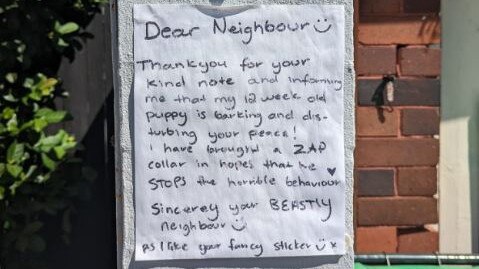 Dear Neighbour
Thankyou for your
kind note and informing
me that my 12 week old
puppy is barking and dis-
turbing your peace!
I have brought a ZAP
collar in hopes that he
STOPS the horrible behaviour
Sincerely your BEASTLY
neighbour
PS I like your fancy sticker x